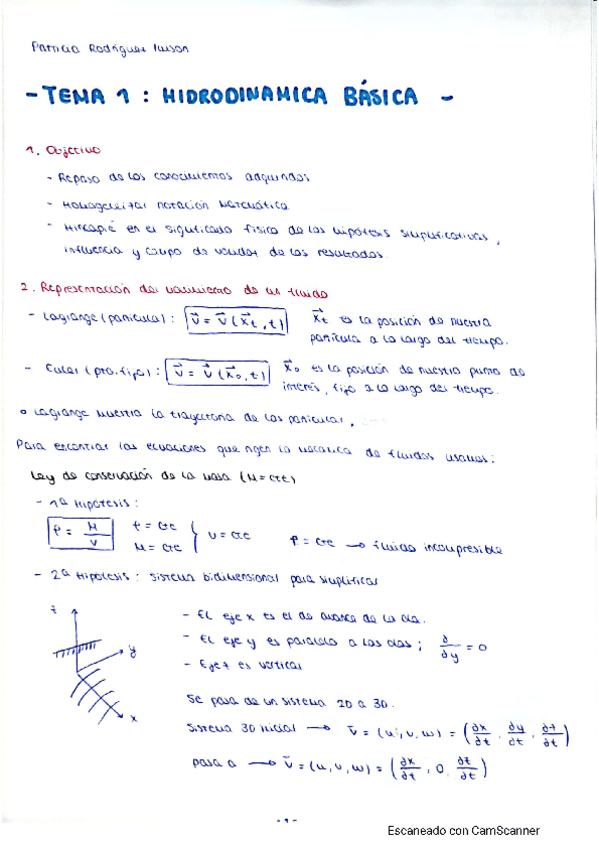 Patricia Rodríguez
- TEMA 1 : HIDRODINAMICA BÁSICA -
1. Objetivo
- Repaso de los conocimientos adquiridos
- Homogeneizar notación matemática
- Hincapié en el significado físico de las hipótesis simplificativas,
influencia y campo de validez de los resultados.
2. Representación del movimiento de un fluido
- Lagrange (partícula) : v⃗ = v⃗ (x⃗t, t) x⃗t es la posición de nuestra
partícula a lo largo del tiempo.
- Euler (pto. fijo) : v⃗ = v⃗ (x⃗o, t) x⃗o es la posición de nuestro punto de
interés, fijo a lo largo del tiempo.
o Lagrange muestra la trayectoria de las partículas,
Para encontrar las ecuaciones que rigen la mecánica de fluidos usamos:
Ley de conservación de la masa (M = cte)
- 1ª Hipótesis :
ρ = M/V ρ = cte M = cte } v = cte ρ = cte → fluido incompresible
- 2ª Hipótesis : sistema bidimensional para simplificar
z y x
- El eje x es el de avance de la ola.
- El eje y es paralelo a las olas ; ∂/∂y = 0
- Eje z es vertical
Se pasa de un sistema 2D a 3D.
Sistema 3D inicial → v⃗ = (u, v, w) = (∂x/∂t, ∂y/∂t, ∂z/∂t)
pasa a → v⃗ = (u, v, w) = (∂x/∂t, 0, ∂z/∂t)
- 1 -
Escaneado con CamScanner